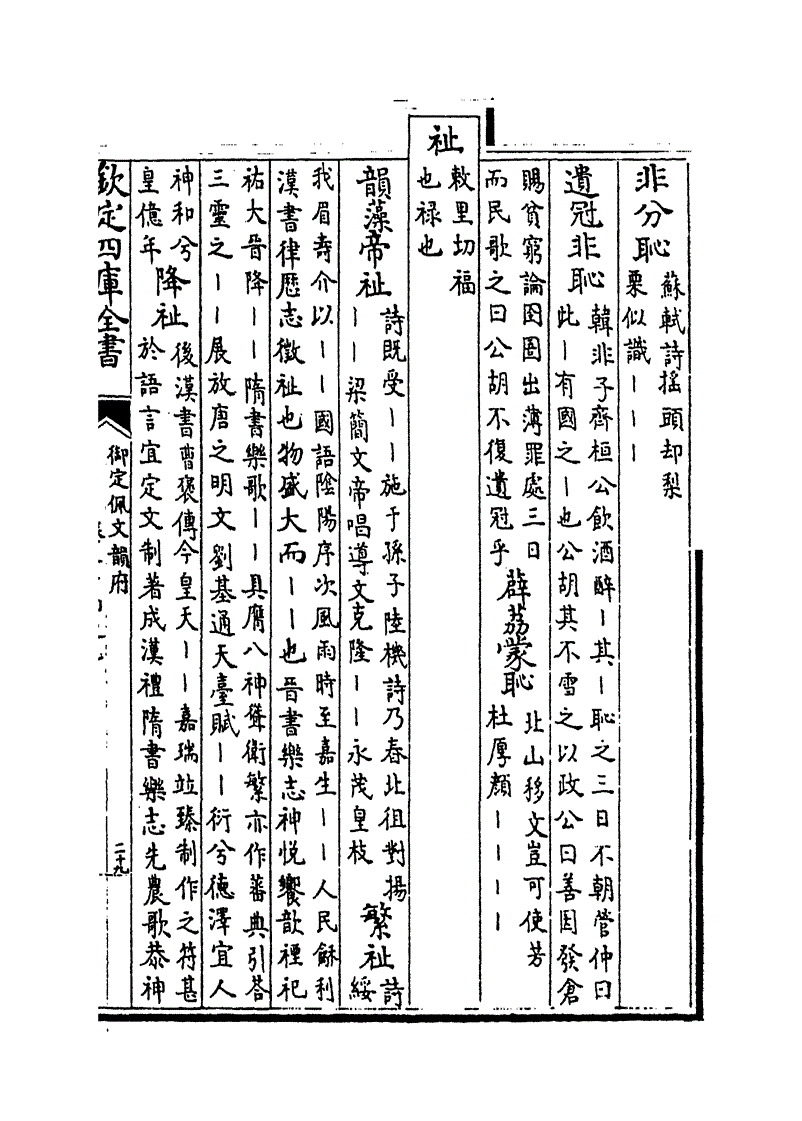 非分恥蘇軾詩揺頭却梨
栗似識丨丨丨
遺冠非恥韓非子齊桓公飲酒醉丨其丨恥之三日不朝管仲曰
此丨有國之丨也公胡其不雪之以政公曰善因發倉
賜貧窮論囹圄出薄罪處三日
而民歌之曰公胡不復遺冠乎
薜荔蒙恥北山移文豈可使芳
杜厚顔丨丨丨丨
祉敕里切福
也禄也
韻藻帝祉詩既受丨丨施于孫子陸機詩乃眷北徂對揚
丨丨梁簡文帝唱導文克隆丨丨永茂皇枝
繁祉詩綏
我眉壽介以丨丨國語陰陽序次風雨時至嘉生丨丨人民龢利
漢書律厯志徵祉也物盛大而丨丨也晉書樂志神悦饗歆禋祀
祐大晉降丨丨隋書樂歌丨丨具膺八神聳衛繁亦作蕃典引荅
三靈之丨丨展放唐之明文劉基通天臺賦丨丨衍兮徳澤宜人
神和兮
皇億年
降祉後漢書曹褒傳今皇天丨丨嘉瑞竝臻制作之符甚
於語言宜定文制著成漢禮隋書樂志先農歌恭神
欽定四庫全書
御定佩文韻府
二十九